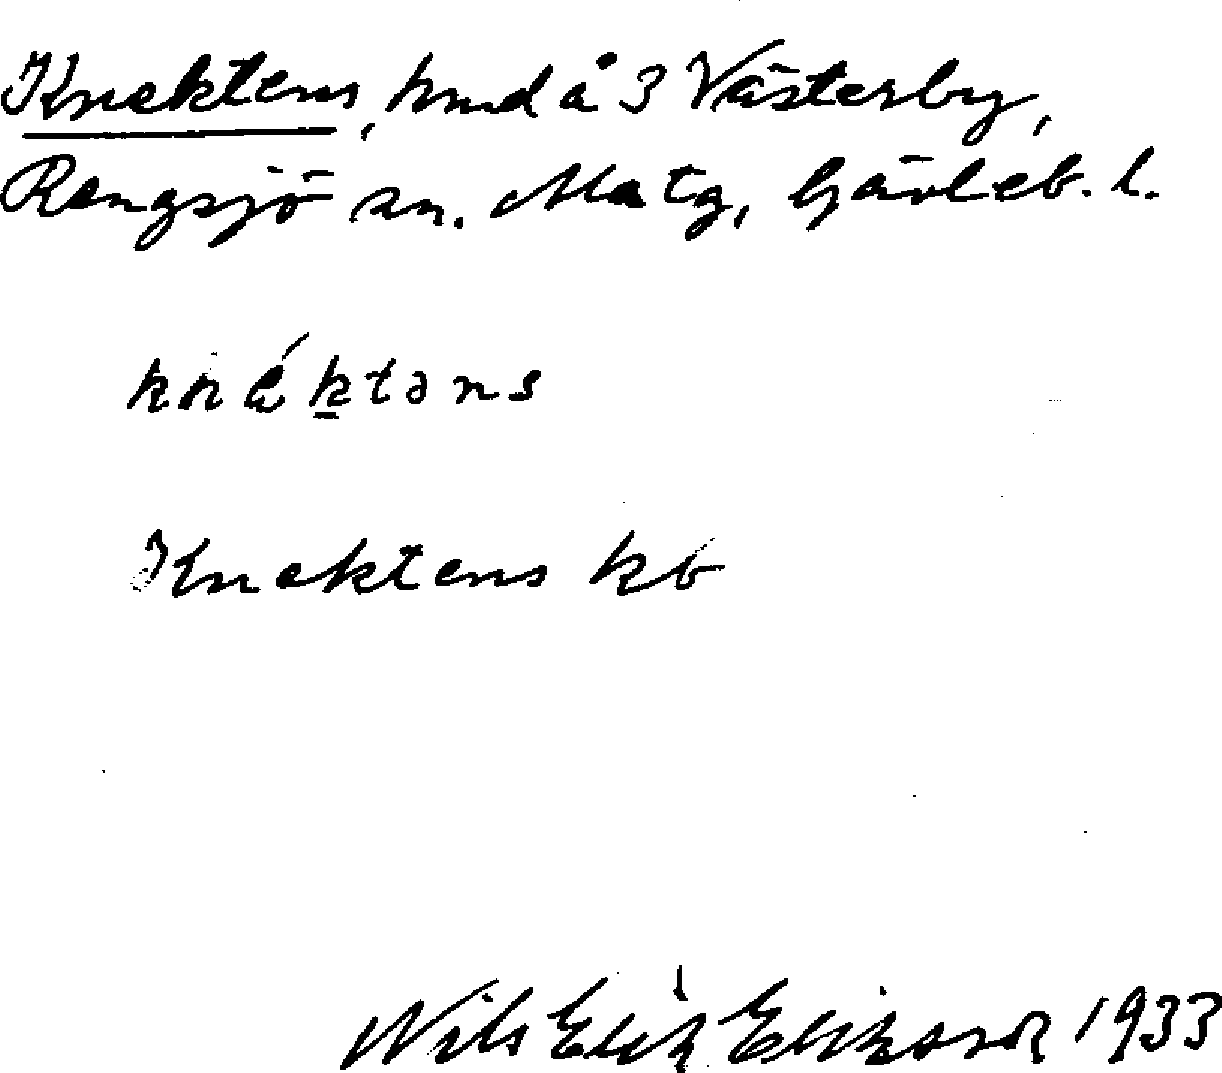 Knektens, hmd å 3 Västerby,
Rengsjö sn. Matg, Gävleb. l.
knéktəns
Knektens kb
Nils Erik Eriksson 1933